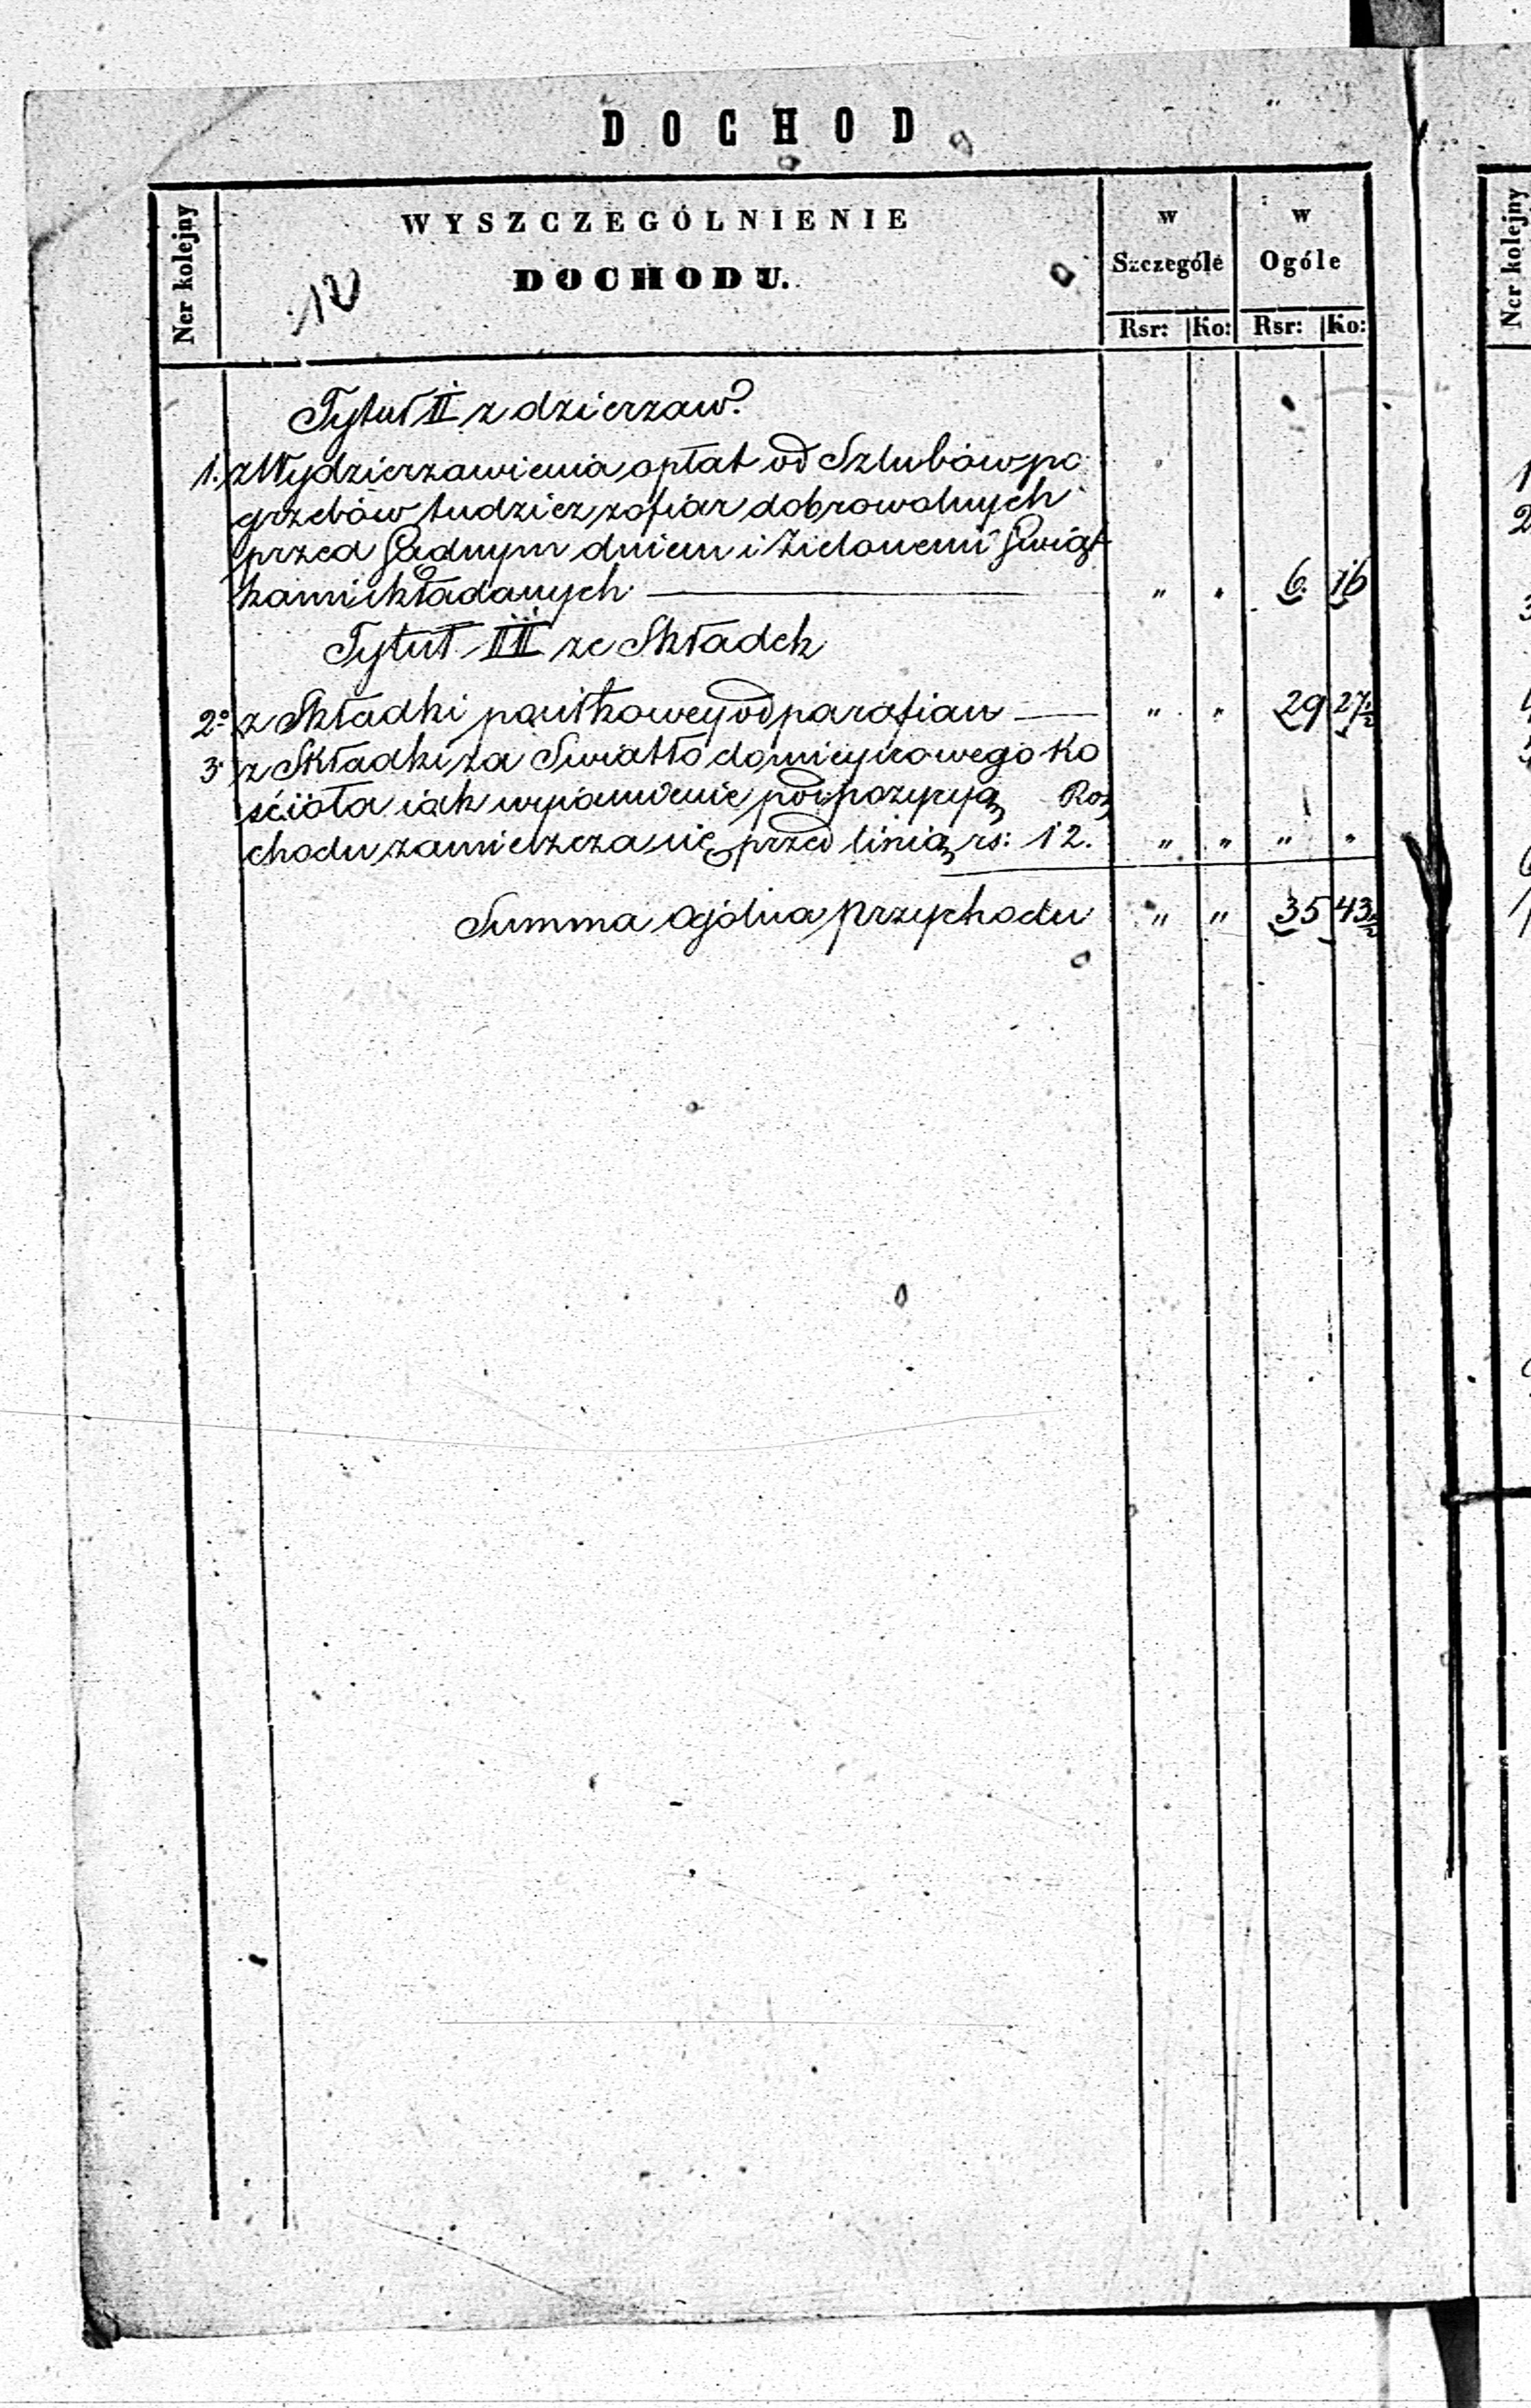 DOCHOD
Ner kolejny
WYSZCZEGÓLNIENIE
DOCHODU.
w
Szczególe
w
Ogóle
Rsr: Ko: Rsr: Ko:
Tytuł II z dzierzaw?
1. z Wydzierzawienia opłat od Szlubów po
grzebów tudziez z ofiar dobrowolnych
przed Sadnym dniem i Zielonemi Swiąt
kami składanych — " " 6. 16
Tytuł III ze Składek
2. z Składki od parafian — " " 29 27½
3 z Składki za Swiatło Ko
ścioła iak pod pozycyą Roz
chodu zamieszcza się przed linią rs: 12. " " " "
Summa Ogólna Przychodu " " 35 43½
Ner kolejny